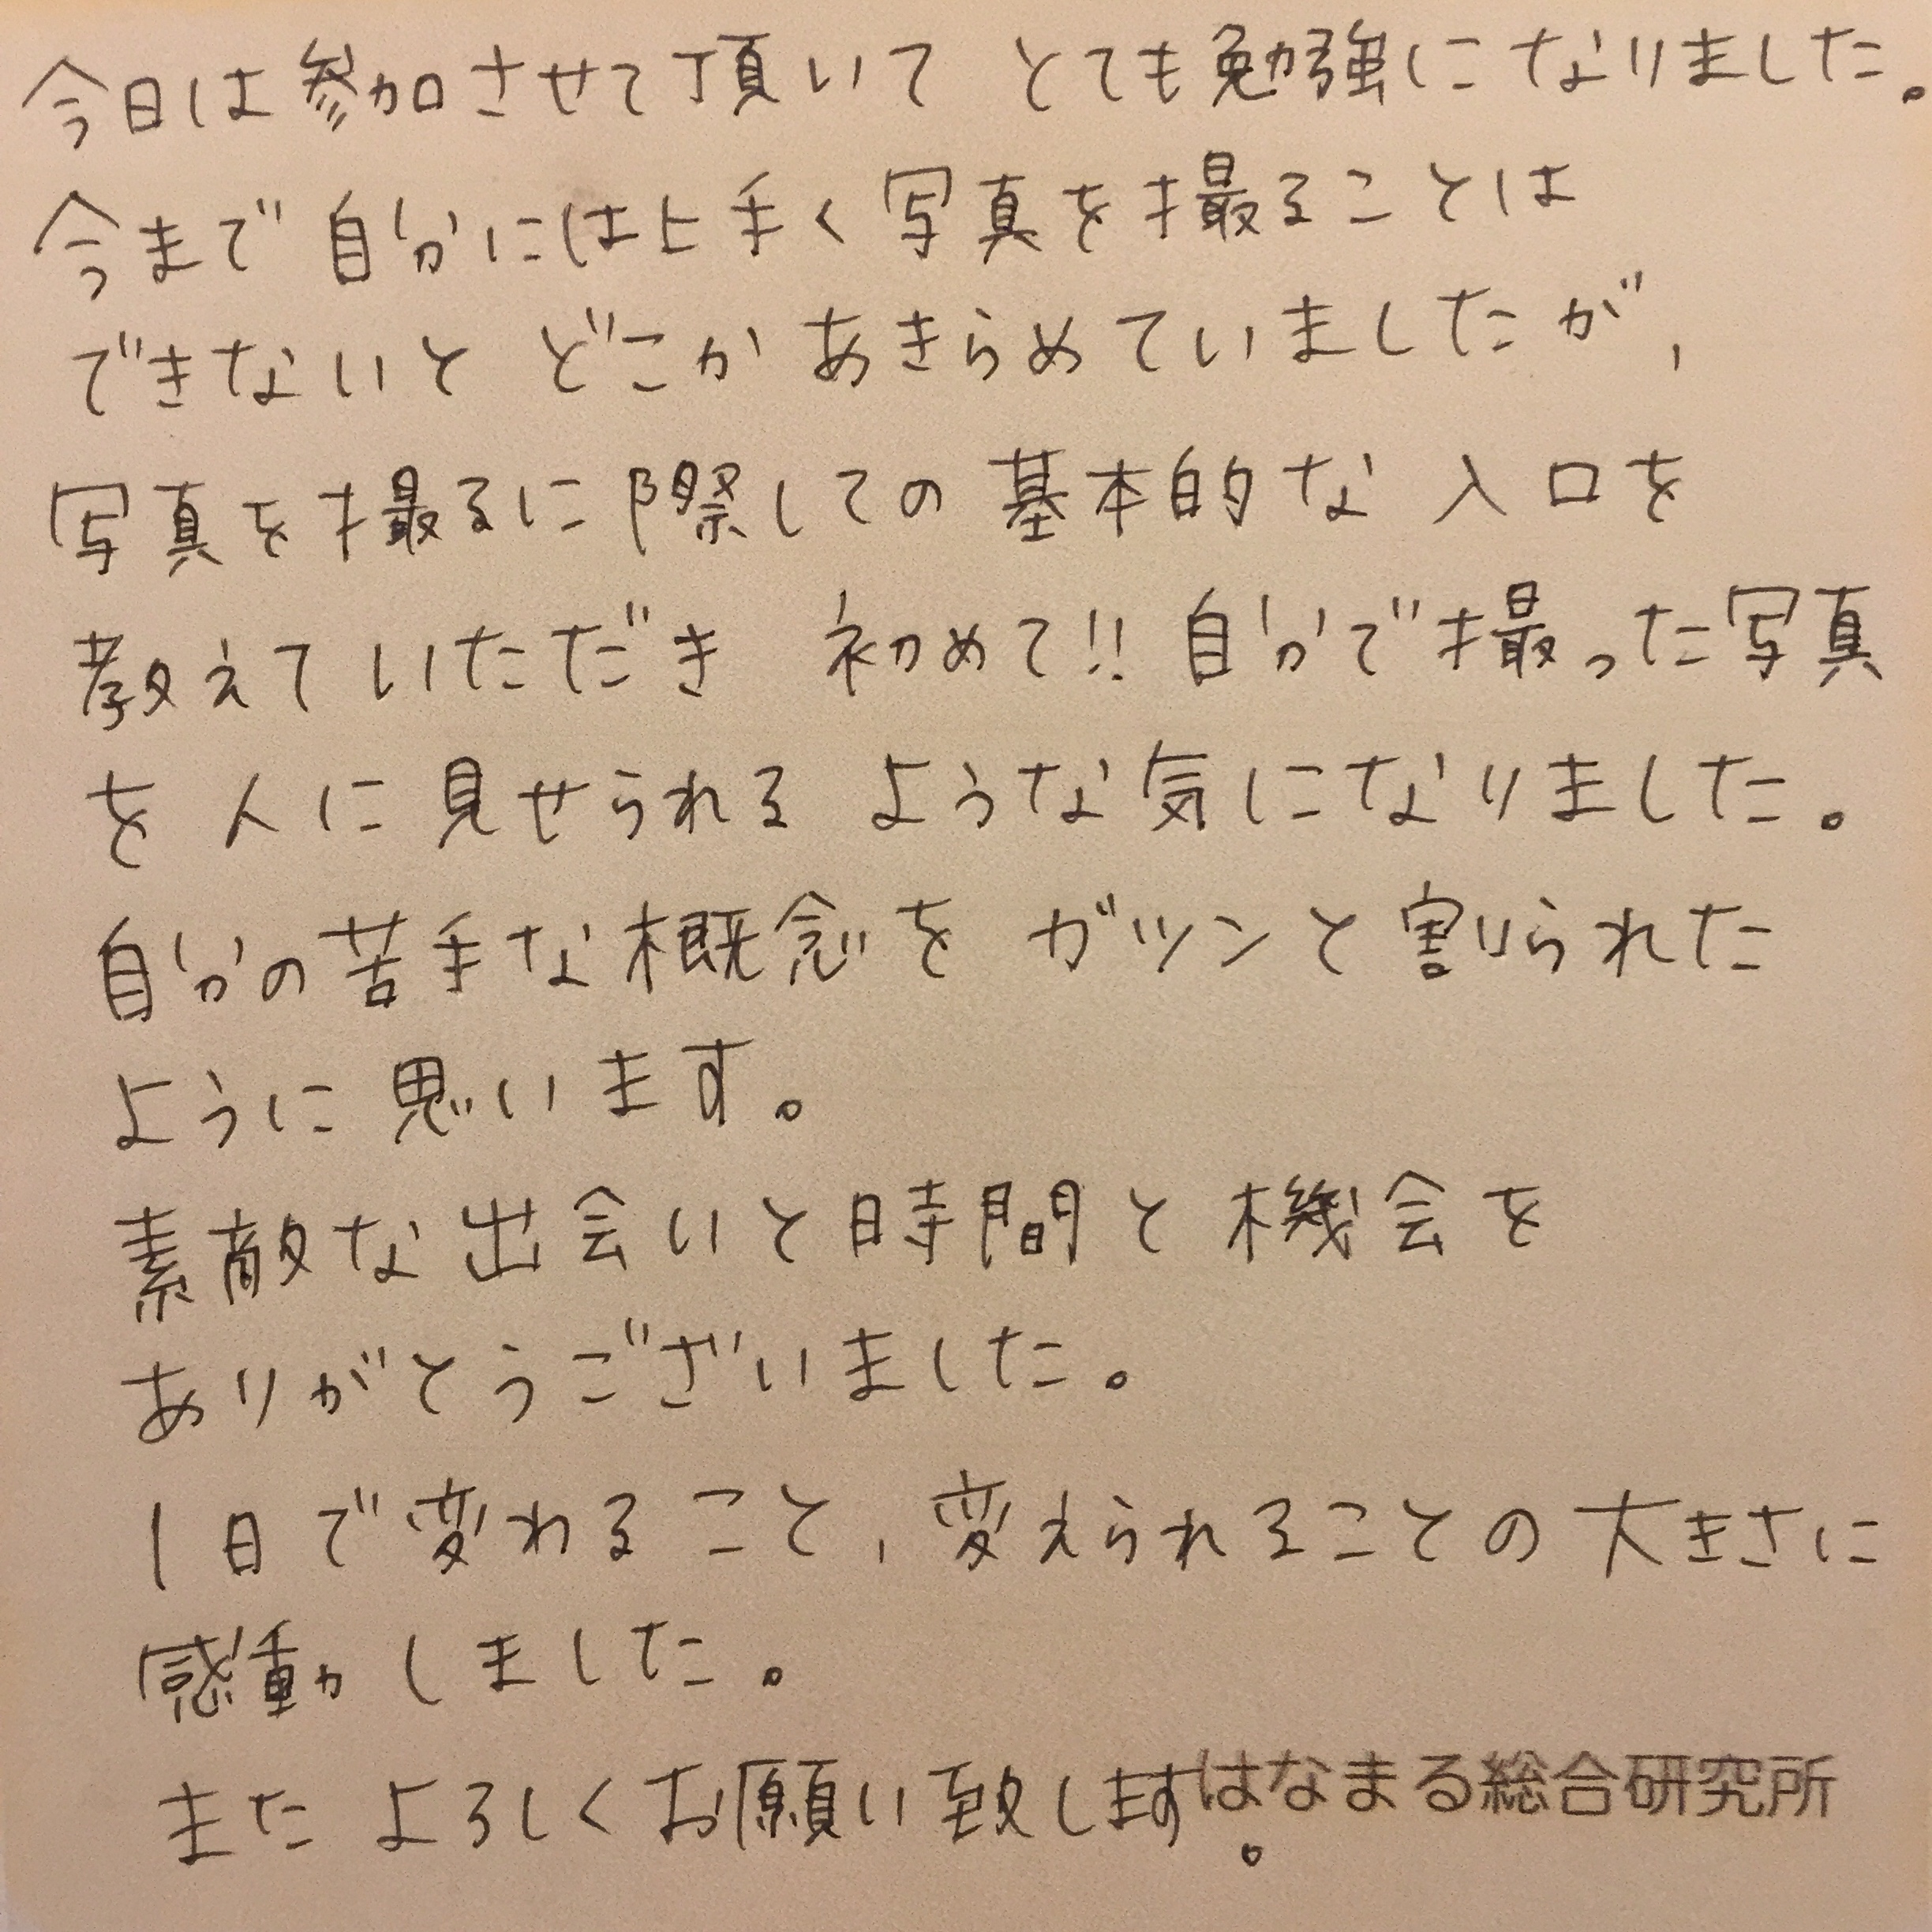 今日は参加させて頂いて とても勉強になりました。
今まで自分には上手く写真を撮ることは
できないと どこか あきらめていましたが、
写真を撮るに際しての基本的な入口を
教えていただき 初めて!! 自分で撮った写真
を人に見せられる ような気になりました。
自分の苦手な概念を ガツンと割られた
ように思います。
素敵な出会いと時間と機会を
ありがとうございました。
1日で変わること、変えられることの大きさに
感動しました。
また よろしくお願い致します。
はなまる総合研究所